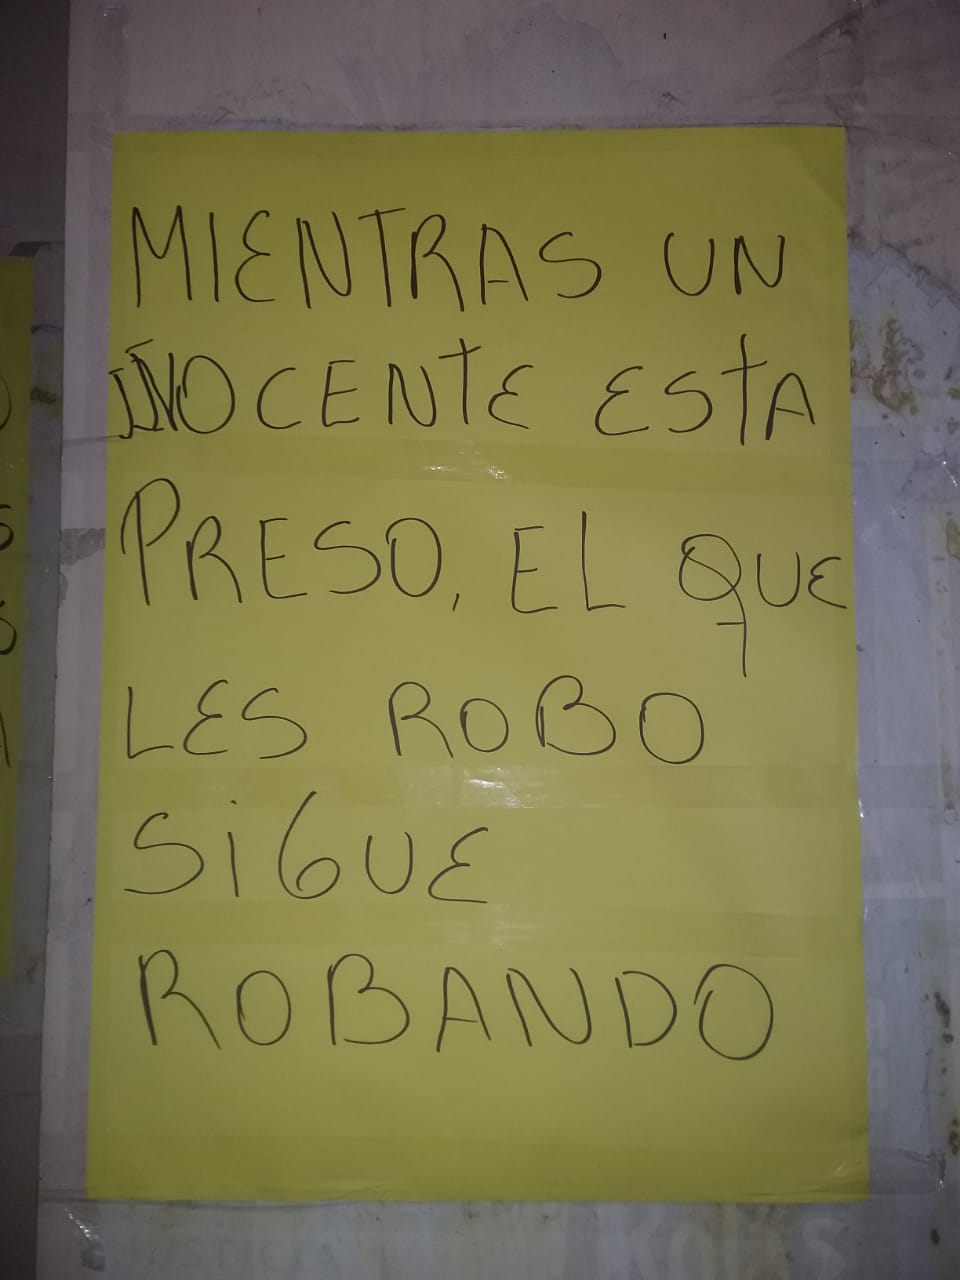 MIENTRAS UN
INOCENTE ESTA
PRESO, EL QUE
LES ROBO
SiGUE
ROBANDO